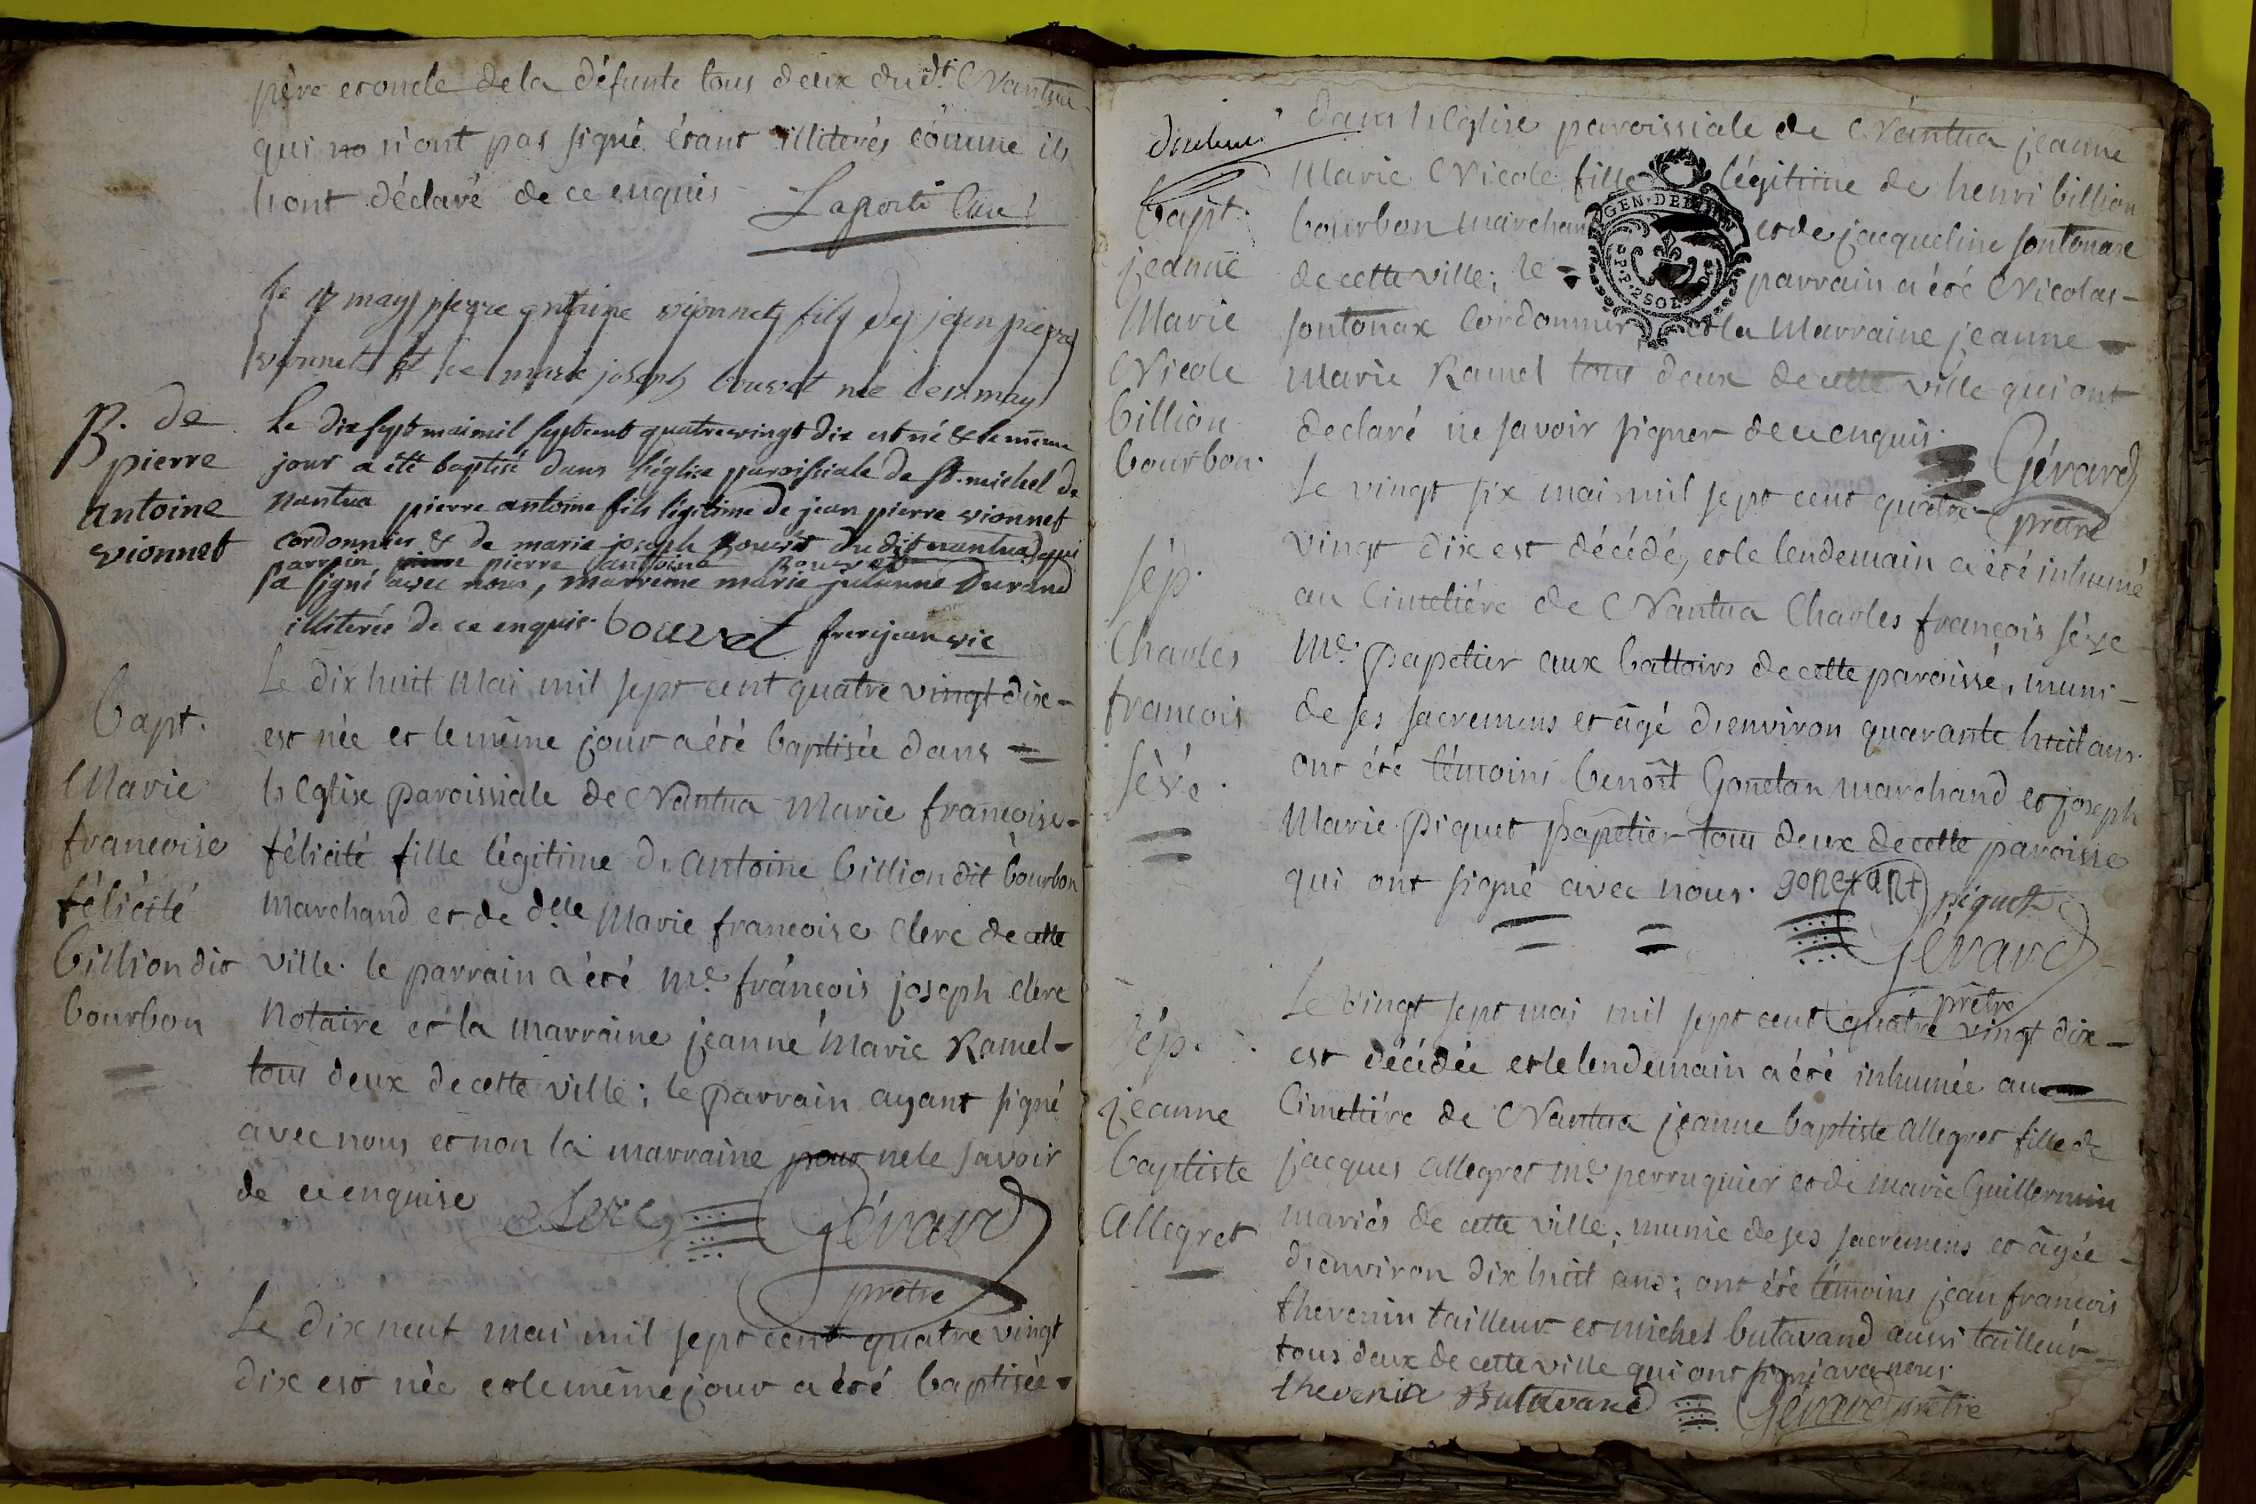 père et oncle de la défunte tous deux dud.t Nantua
qui no n'ont pas signé étant illiterés comme ils
l'ont déclaré de ce enquis Laporte Curé
le 17 may pierre antoine vionnet fils de jean pierre
vionnet et de marie joseph bouvet née le 17 may
B. de
pierre
antoine
vionnet
Le dix sept mai mil sept cent quatre vingt dix est né & le même
jour a été baptisé dans l'église paroissiale de St. michel de
Nantua pierre antoine fils légitime de jean pierre vionnet
cordonnier & de marie joseph Bouvet du dit nantua, qui
parrain pierre antoine Bouvet
a signé avec nous, marreine marie julienne Durand
illiterée de ce enquise. bouvet frerejean vic
bapt.
Marie
francoise
félicité
billion dit
bourbon
Le dix huit Mai mil sept cent quatre vingt dix
est née et le même jour a été baptisée dans
l'Eglise paroissiale de Nantua Marie francoise
félicité fille légitime d'antoine billion dit bourbon
marchand et de d.lle Marie francoise Clerc de cette
ville. le parrain a été M.e françois joseph clerc
Notaire et la marraine jeanne Marie Ramel
tous deux de cette ville; le parrain ayant signé
avec nous et non la marraine pour ne le savoir
de ce enquise Clerc Gérard
prêtre
Le dix neuf mai mil sept cent quatre vingt
dix est née et le même jour a été baptisée
bapt.
jeanne
Marie
Nicole
billion
bourbon.
dans l'Eglise paroissiale de Nantua jeanne
Marie Nicole fille légitime de henri billion
bourbon marchand et de jacqueline sontonax
de cette ville; le parrain a été Nicolas
sontonax Cordonnier et la Marraine jeanne
Marie Ramel tous deux de cette ville qui ont
declaré ne savoir signer de ce enquis. Gérard
prêtre
GEN. DE
2 SOLS
sép.
Charles
francois
sève.
Le vingt six mai mil sept cent quatre
vingt dix est décédé, et le lendemain a été inhumé
au Cimetiére de Nantua Charles françois sève
M.e papetier aux battoirs de cette paroisse, muni
de ses sacremens et âgé d'environ quarante huit ans.
ont été témoins benoît Gonetan marchand et joseph
Marie piquet papetier tous deux de cette paroisse
qui ont signé avec nous. gonetant piquet
Gérard
prêtre
sép.
jeanne
baptiste
allegret
Le vingt sept mai mil sept cent quatre vingt dix
est décédée et le lendemain a été inhumée au
Cimetiére de Nantua jeanne baptiste allegret fille de
jacques allegret M.e perruquier et de marie Guillermin
mariés de cette ville; munie de ses sacremens et âgée
d'environ dix huit ans; ont été témoins jean francois
thevenin tailleur et michel butavand aussi tailleur
tous deux de cette ville qui ont signé avec nous.
thevenin Butavand Gérard prêtre